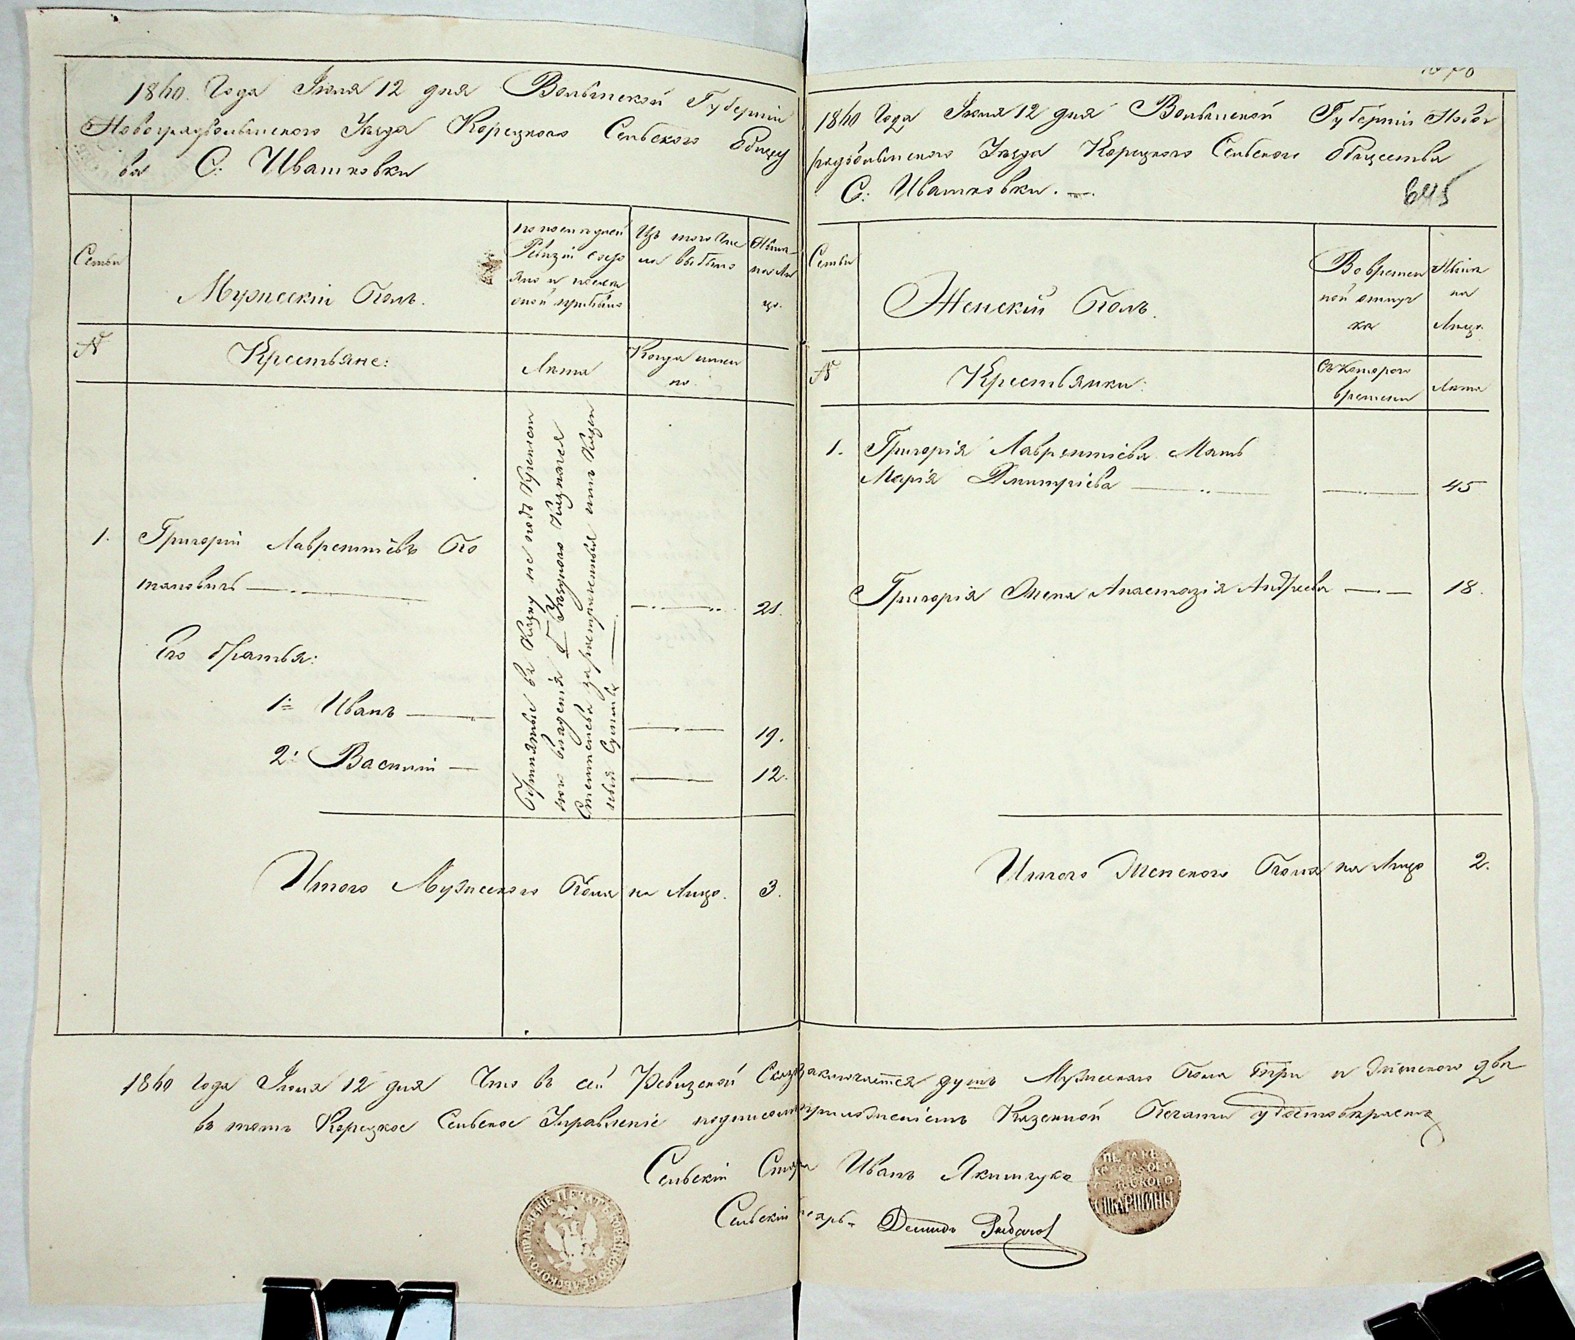 1860. Года Июля 12 дня Волынской Губернии
Новоградволынского Уезда Корецкого Сельского Общес
ва С: Ивашковки
Семьи
Мужескій Полъ.
по последней
Ревизіи состо
яло и после
оной прибыло
Изъ того чис
ла выбыло
Ныне
на Ли
цо.
№
Крестьяне:
Лета
Когда имен
но.
1.
Григорій Лаврентіевъ По
тановичъ
21.
Его братья:
1й Иванъ
19.
2й Василій
12.
Итого Мужеского Пола на Лицо.
3.
1860 Года Июля 12 дня Волынской ГуберніиНово
градволынского Уезда Корецкого Сельского Общества
С: Ивашковки.
645
Семьи
Женскій Полъ.
Во времен
ной отлуч
ке
Ныне
на
Лицо
№
Крестьянки:
Съ которого
времени
Лета
1.
Григорія Лаврентіева Мать
Марія Дмитріева
45
Григорія Жена Анастазія Андреева
18.
Итого Женского Пола на Лицо
2.
1860 Года Июля 12 дня Что въ сей Ревизской Сказке заключается душъ Мужеского Пола три и Женского две
въ томъ Корецкое Сельское Управленіе подписомъ приложеніемъ Казенной Печати удостоверяетъ
Сельскій Стар Иванъ Якимчукъ
Сельскій Писарь Демидъ
ПЕЧАТЬ
КОРЕЦКОГО
СЕЛЬСКОГО
СТАРШИНЫ